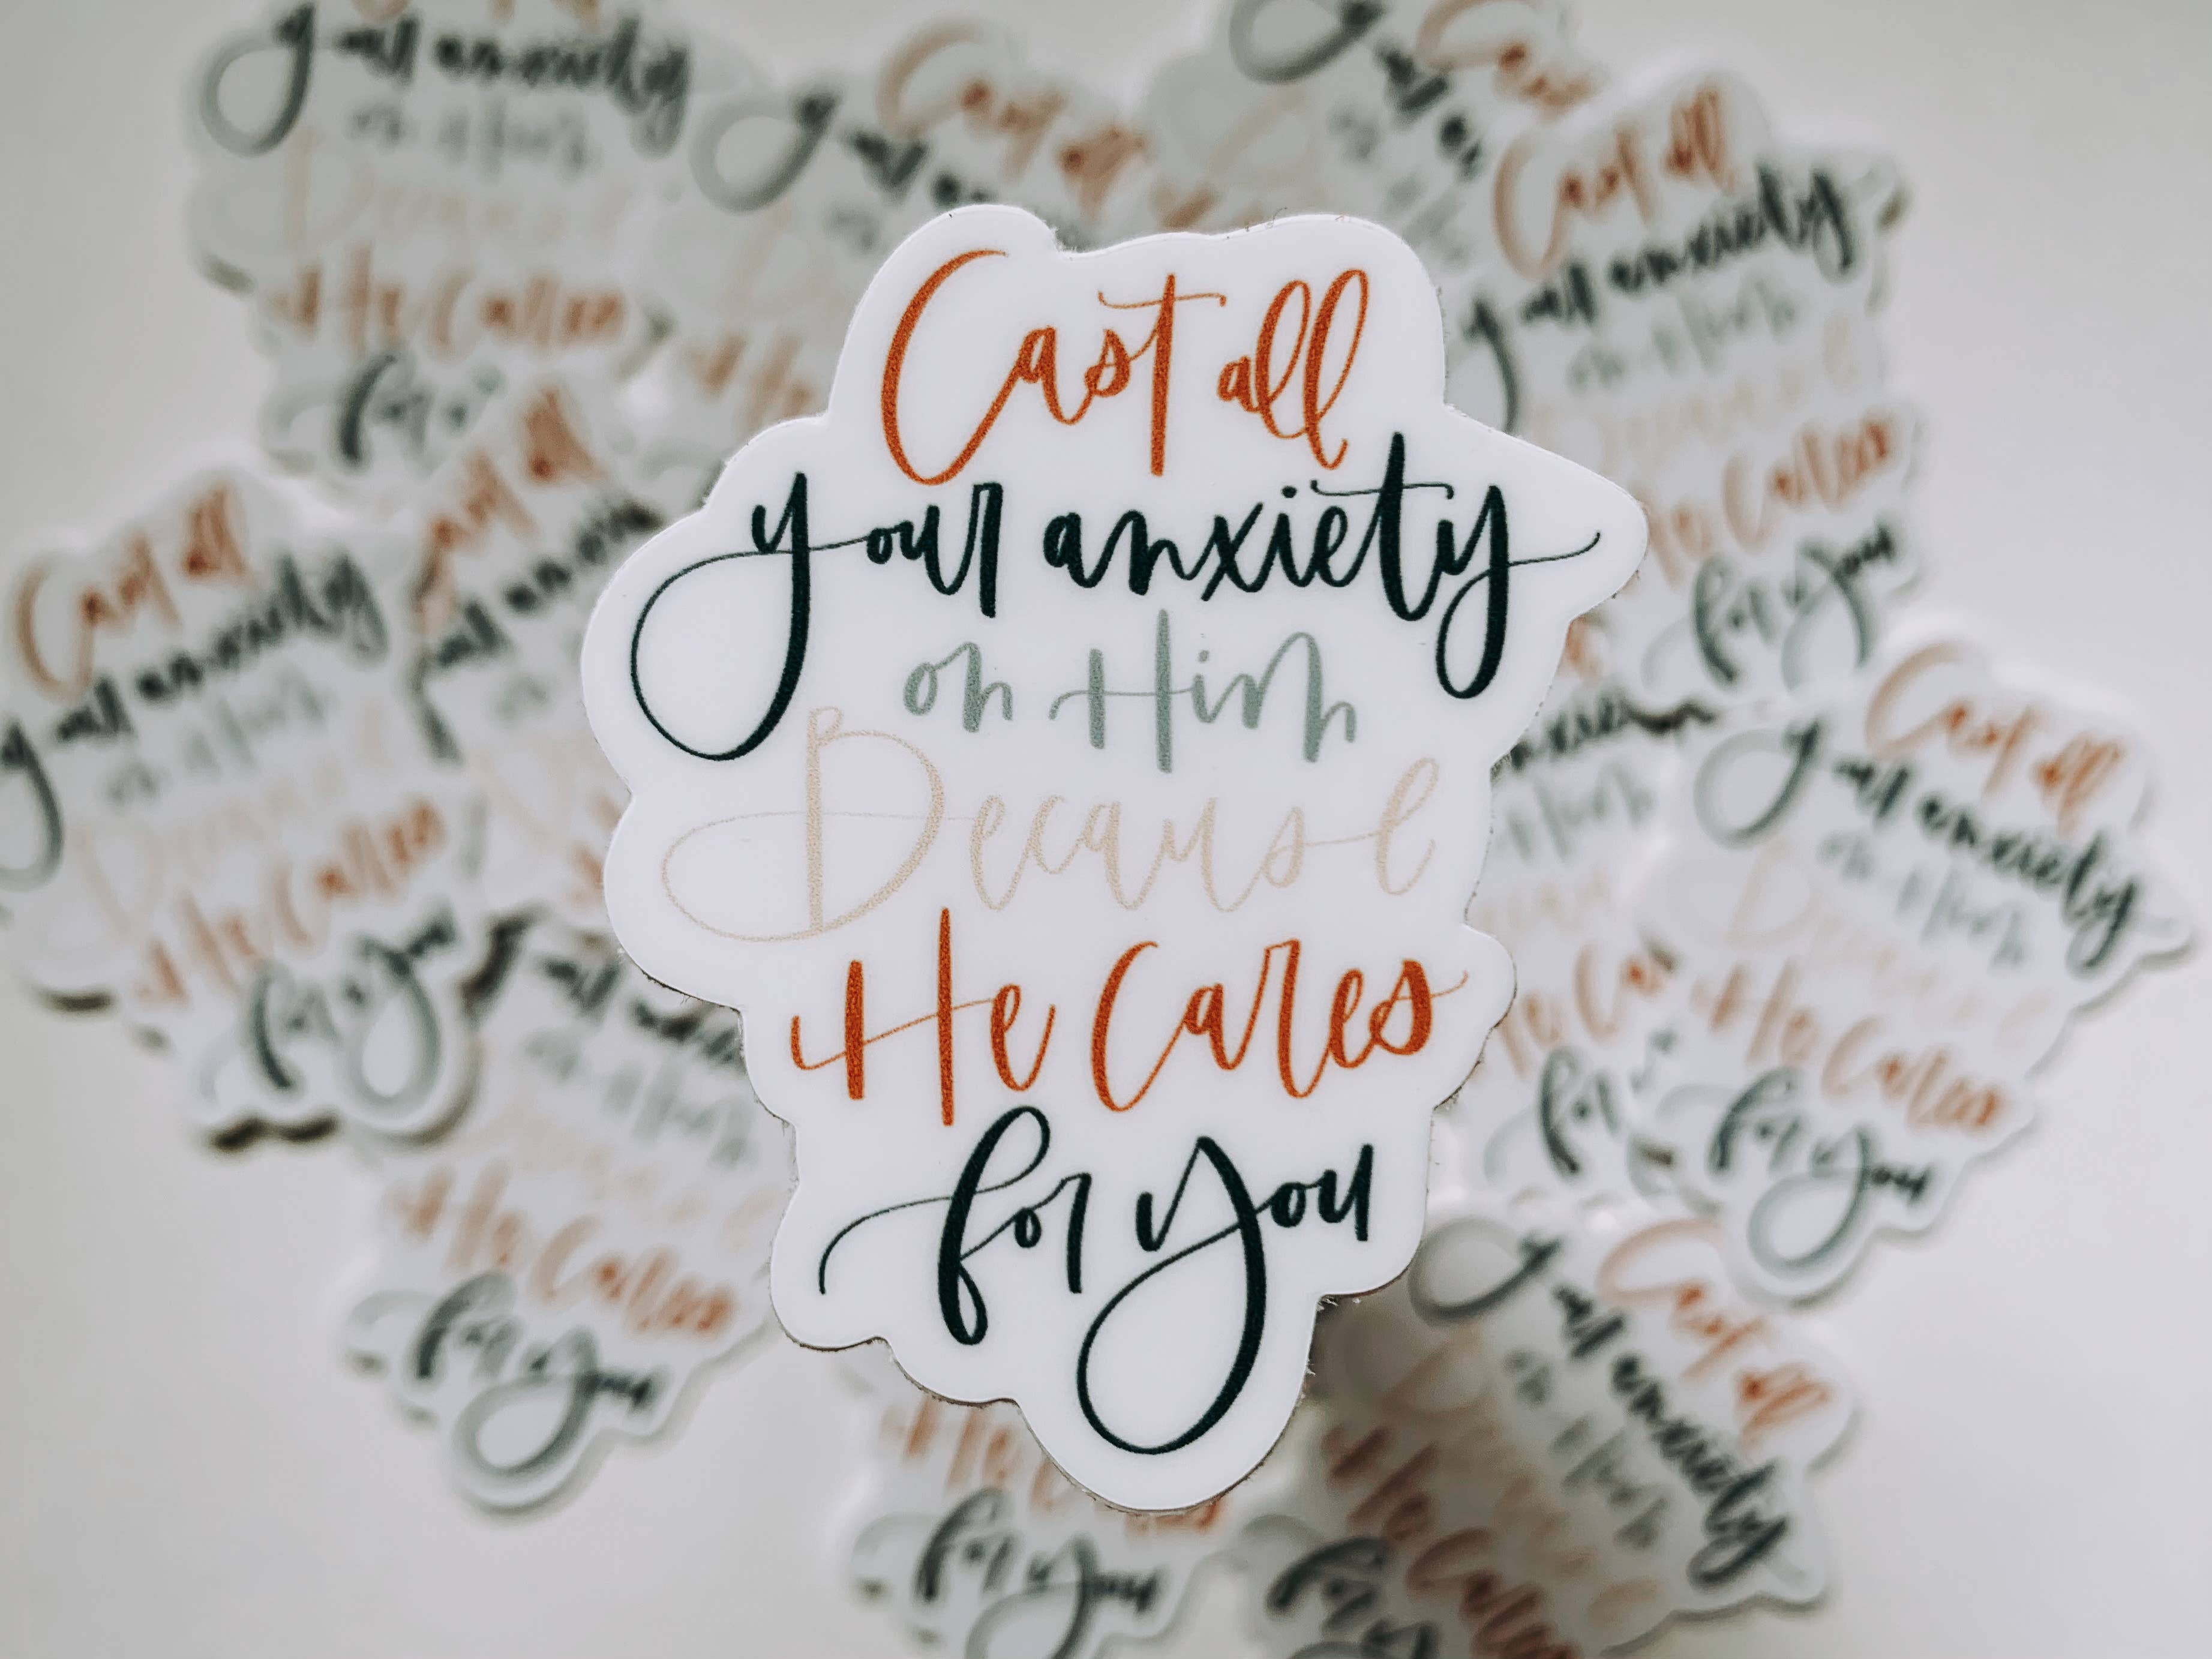 Cast all
your anxiety
on Him
Because
He Cares
for you